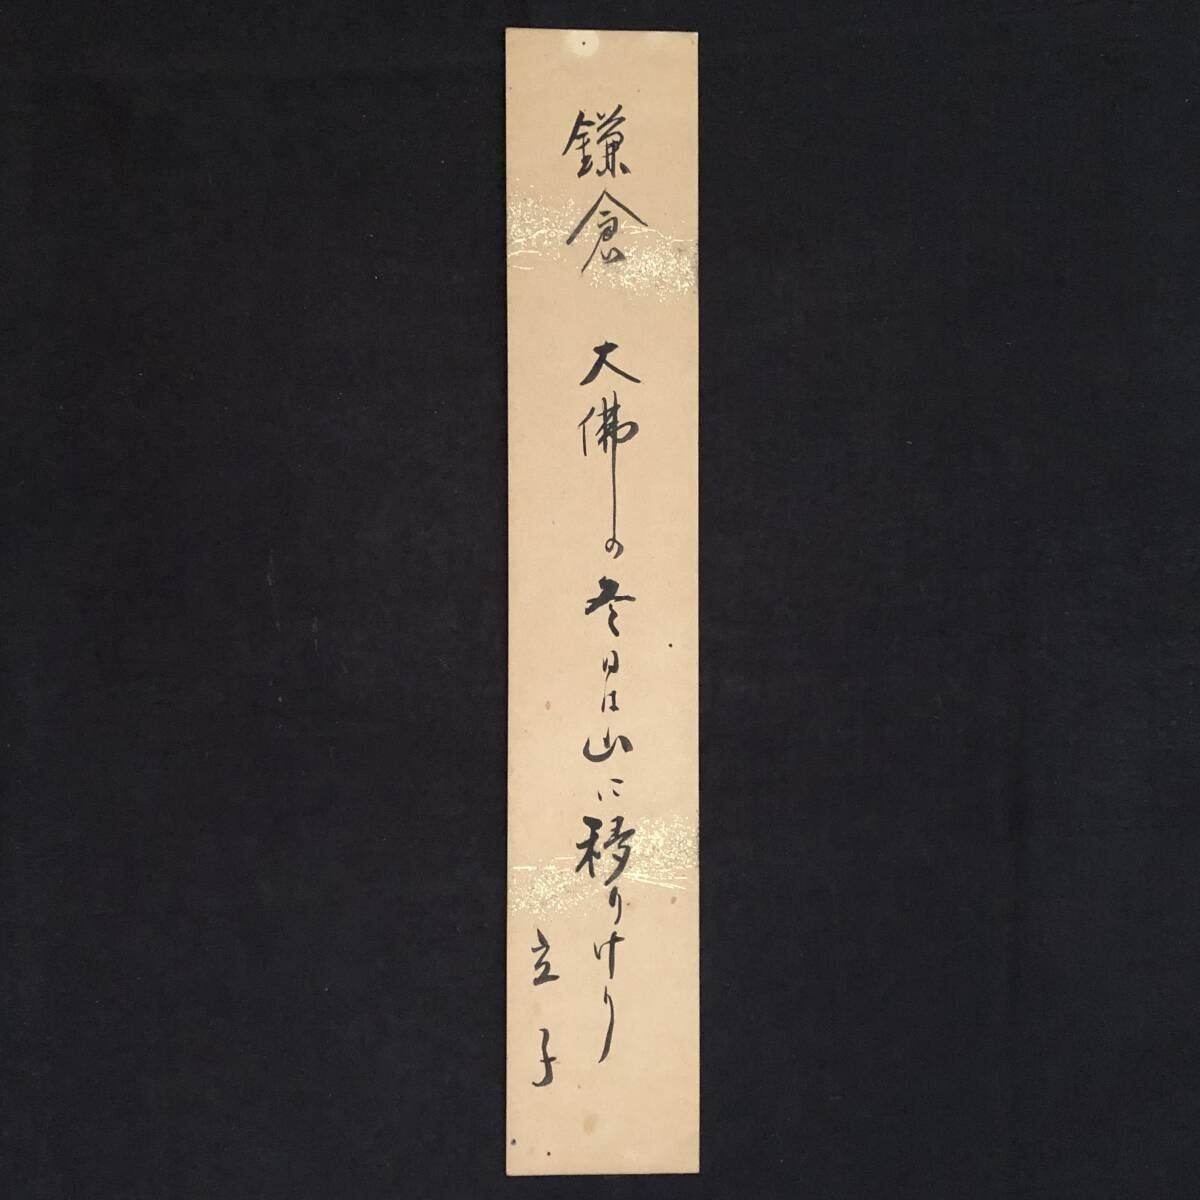 鎌倉
大佛の冬日は山に移りけり
立子